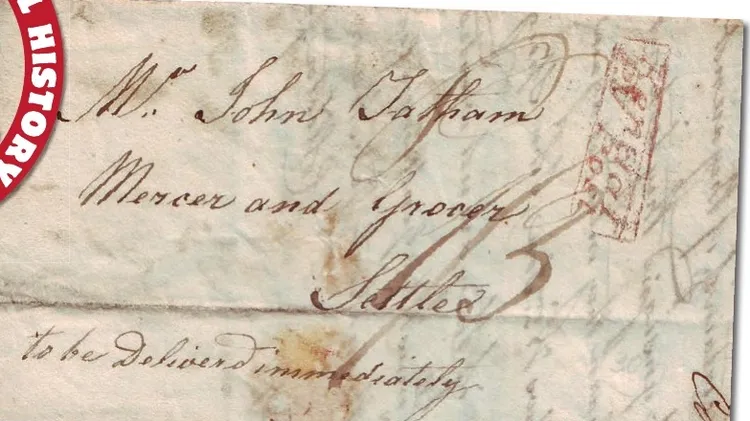 L HISTORY
Mr. John Tatham
Mercer and Grocer
Settle
1/3
to be Deliverd immediately